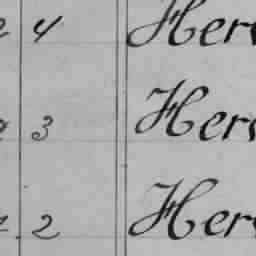 4 Herv
3 Herv
2 Herv